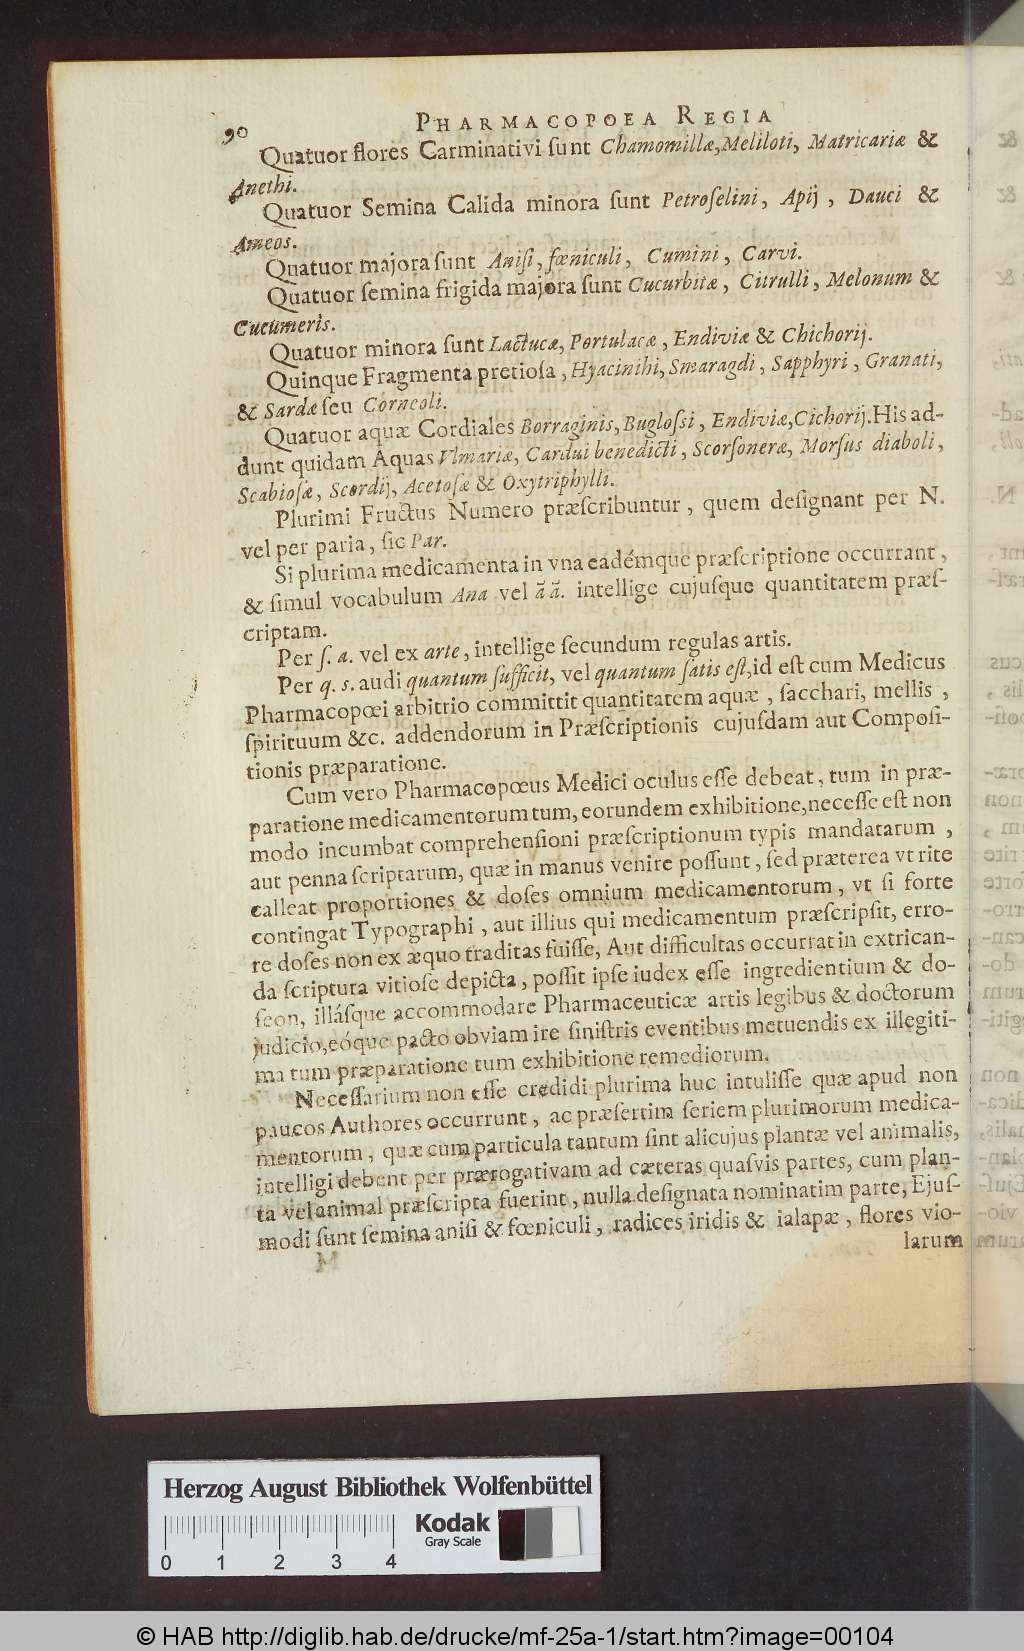 90
PHARMACOPOEA REGIA
Quatuor flores Carminativi ſunt Chamomillæ, Meliloti, Matricariæ &
Anethi.
Quatuor Semina Calida minora ſunt Petroſelini, Apij, Dauci &
Ameos.
Quatuor majora ſunt Aniſi, fœniculi, Cumini, Carvi.
Quatuor ſemina frigida majora ſunt Cucurbitæ, Citrulli, Melonum &
Cucumeris.
Quatuor minora ſunt Lactucæ, Portulacæ, Endiviæ & Chichorij.
Quinque Fragmenta pretioſa, Hyacinthi, Smaragdi, Sapphyri, Granati,
& Sardæ ſeu Corneoli.
Quatuor aquæ Cordiales Borraginis, Bugloſſi, Endiviæ, Cichorij. His ad-
dunt quidam Aquas Vlmariæ, Cardui benedicti, Scorſoneræ, Morſus diaboli,
Scabioſæ, Scordij, Acetoſæ & Oxytriphylli.
Plurimi Fructus Numero præſcribuntur, quem deſignant per N.
vel per paria, ſic Par.
Si plurima medicamenta in vna eadémque præſcriptione occurrant,
& ſimul vocabulum Ana vel ã ã. intellige cujuſque quantitatem præſ-
criptam.
Per ſ. a. vel ex arte, intellige ſecundum regulas artis.
Per q. s. audi quantum ſufficit, vel quantum ſatis eſt, id eſt cum Medicus
Pharmacopœi arbitrio committit quantitatem aquæ, ſacchari, mellis,
ſpirituum &c. addendorum in Præſcriptionis cujuſdam aut Compoſi-
tionis præparatione.
Cum vero Pharmacopœus Medici oculus eſſe debeat, tum in præ-
paratione medicamentorum tum, eorundem exhibitione, neceſſe eſt non
modo incumbat comprehenſioni præſcriptionum typis mandatarum,
aut penna ſcriptarum, quæ in manus venire poſſunt, ſed præterea vt rite
calleat proportiones & doſes omnium medicamentorum, vt ſi forte
contingat Typographi, aut illius qui medicamentum præſcripſit, erro-
re doſes non ex æquo traditas fuiſſe, Aut difficultas occurrat in extrican-
da ſcriptura vitioſe depicta, poſſit ipſe iudex eſſe ingredientium & do-
ſeon, illáſque accommodare Pharmaceuticæ artis legibus & doctorum
judicio, eóque pacto obviam ire ſiniſtris eventibus metuendis ex illegiti-
ma tum præparatione tum exhibitione remediorum.
Neceſſarium non eſſe credidi plurima huc intuliſſe quæ apud non
paucos Authores occurrunt, ac præſertim ſeriem plurimorum medica-
mentorum, quæ cum particula tantum ſint alicujus plantæ vel animalis,
intelligi debent per prærogativam ad cæteras quaſvis partes, cum plan-
ta vel animal præſcripta fuerint, nulla deſignata nominatim parte, Ejuſ-
modi ſunt ſemina aniſi & fœniculi, radices iridis & ialapæ, flores vio-
larum
Herzog August Bibliothek Wolfenbüttel
Kodak
Gray Scale
0 1 2 3 4
© HAB http://diglib.hab.de/drucke/mf-25a-1/start.htm?image=00104